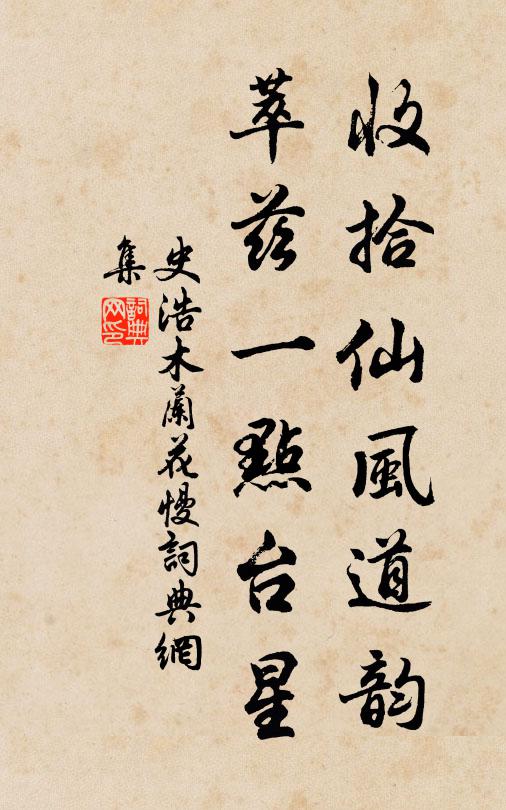 收拾仙風道韵
萃兹一點台星
史浩木蘭花慢詞典網
集
詞典网印